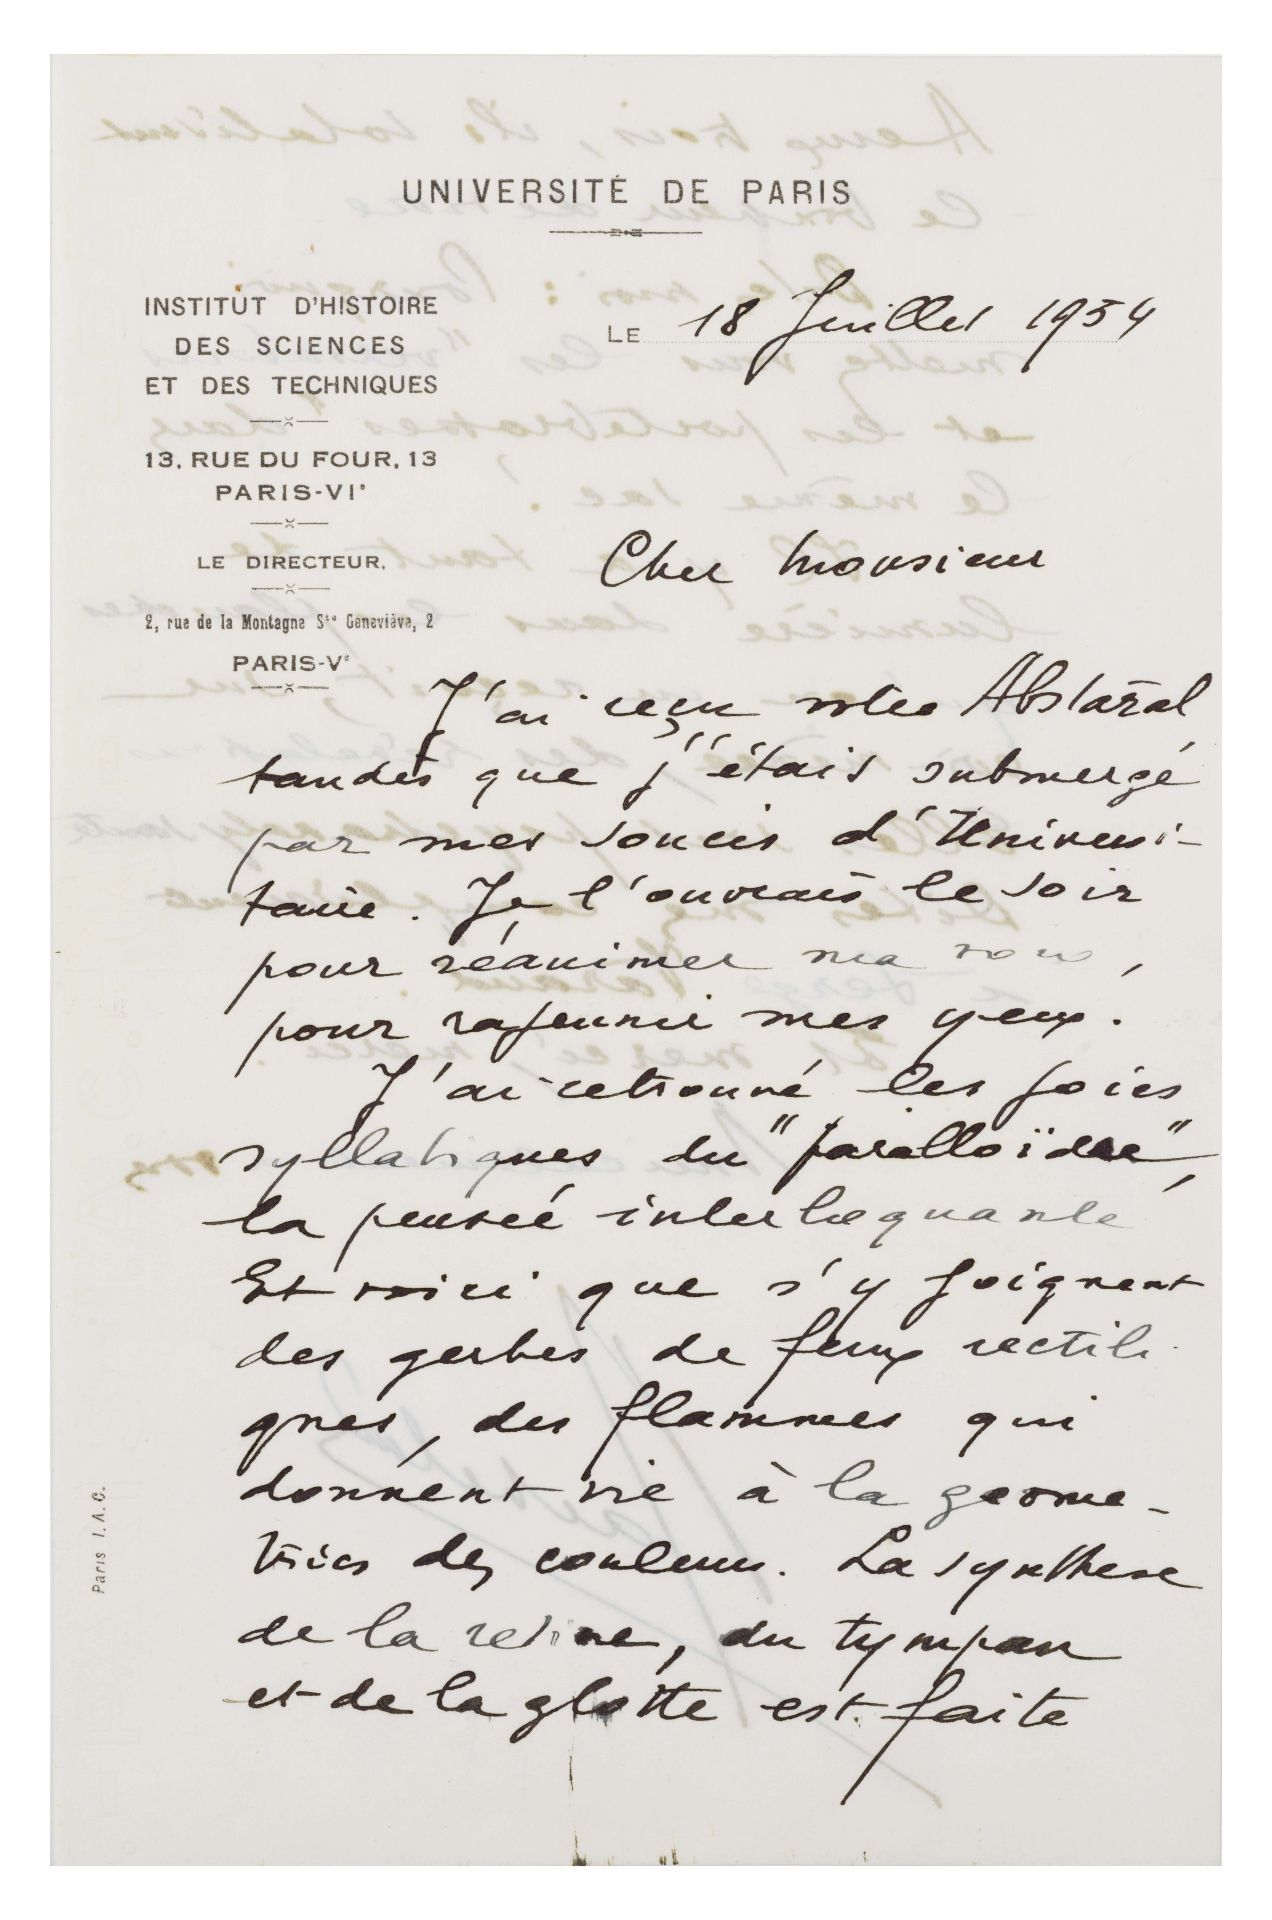 UNIVERSITÉ DE PARIS
INSTITUT D'HISTOIRE
DES SCIENCES
ET DES TECHNIQUES
13, RUE DU FOUR, 13
PARIS-VIe
LE DIRECTEUR.
2, rue de la Montagne Ste Geneviève, 2
PARIS-Ve
LE 18 Juillet 1954
Cher Monsieur
J'ai reçu votre Abstaral
tandis que j'étais submergé
par mes soucis d'Universi-
taire. Je l'ouvrais le soir
pour réanimer ma voix,
pour rajeunir mes yeux.
J'ai retrouvé les joies
syllabiques du "paralloïdre",
la pensée interloquante
Et voici que s'y joignent
des gerbes de feux rectili-
gnes, des flammes qui
donnent vie à la géomé-
tries des couleurs. La synthèse
de la rétine, du tympan
et de la glotte est faite
Paris I.A.C.